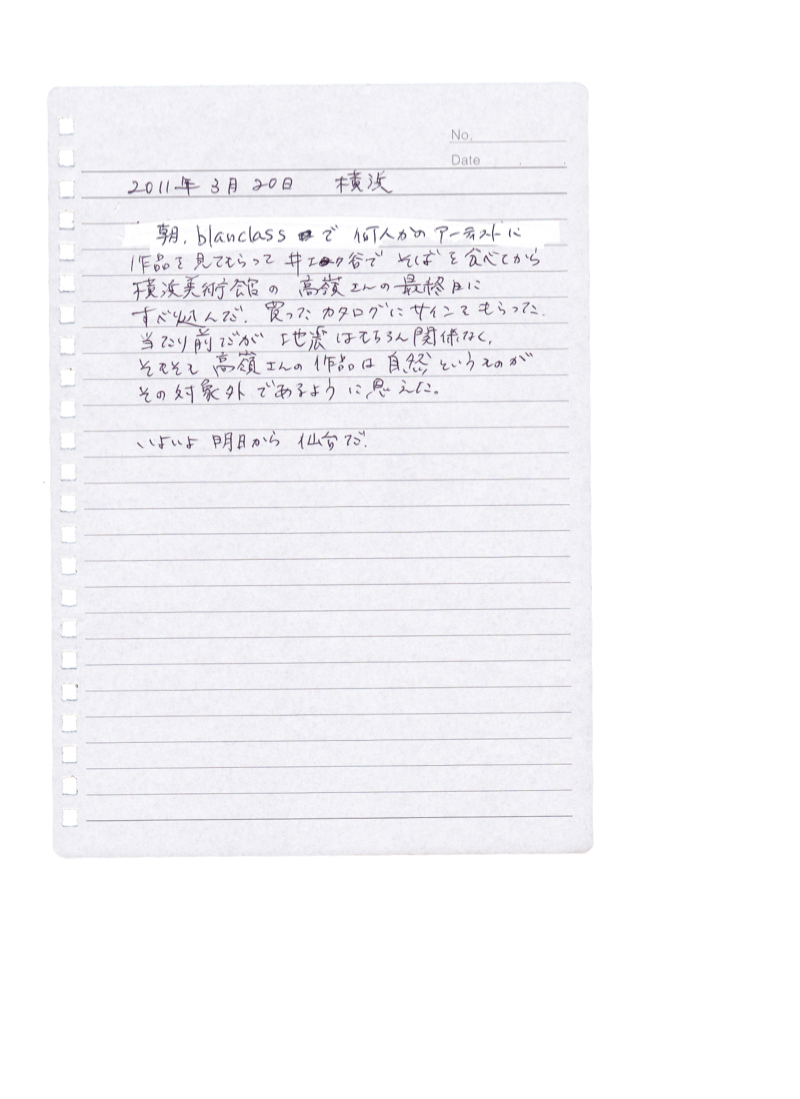 No.
Date
2011年 3月 20日 横浜
朝、blanclass で 何人かの アーティストに
作品を見てもらって 井土ヶ谷で そばを食べてから
横浜美術館の 高嶺さんの最終日に
すべり込んだ。買ったカタログにサインをもらった。
当たり前だが 地震はもちろん関係なく、
そもそも 高嶺さんの作品は自然というものが
その対象外であるように思えた。
いよいよ 明日から 仙台だ。